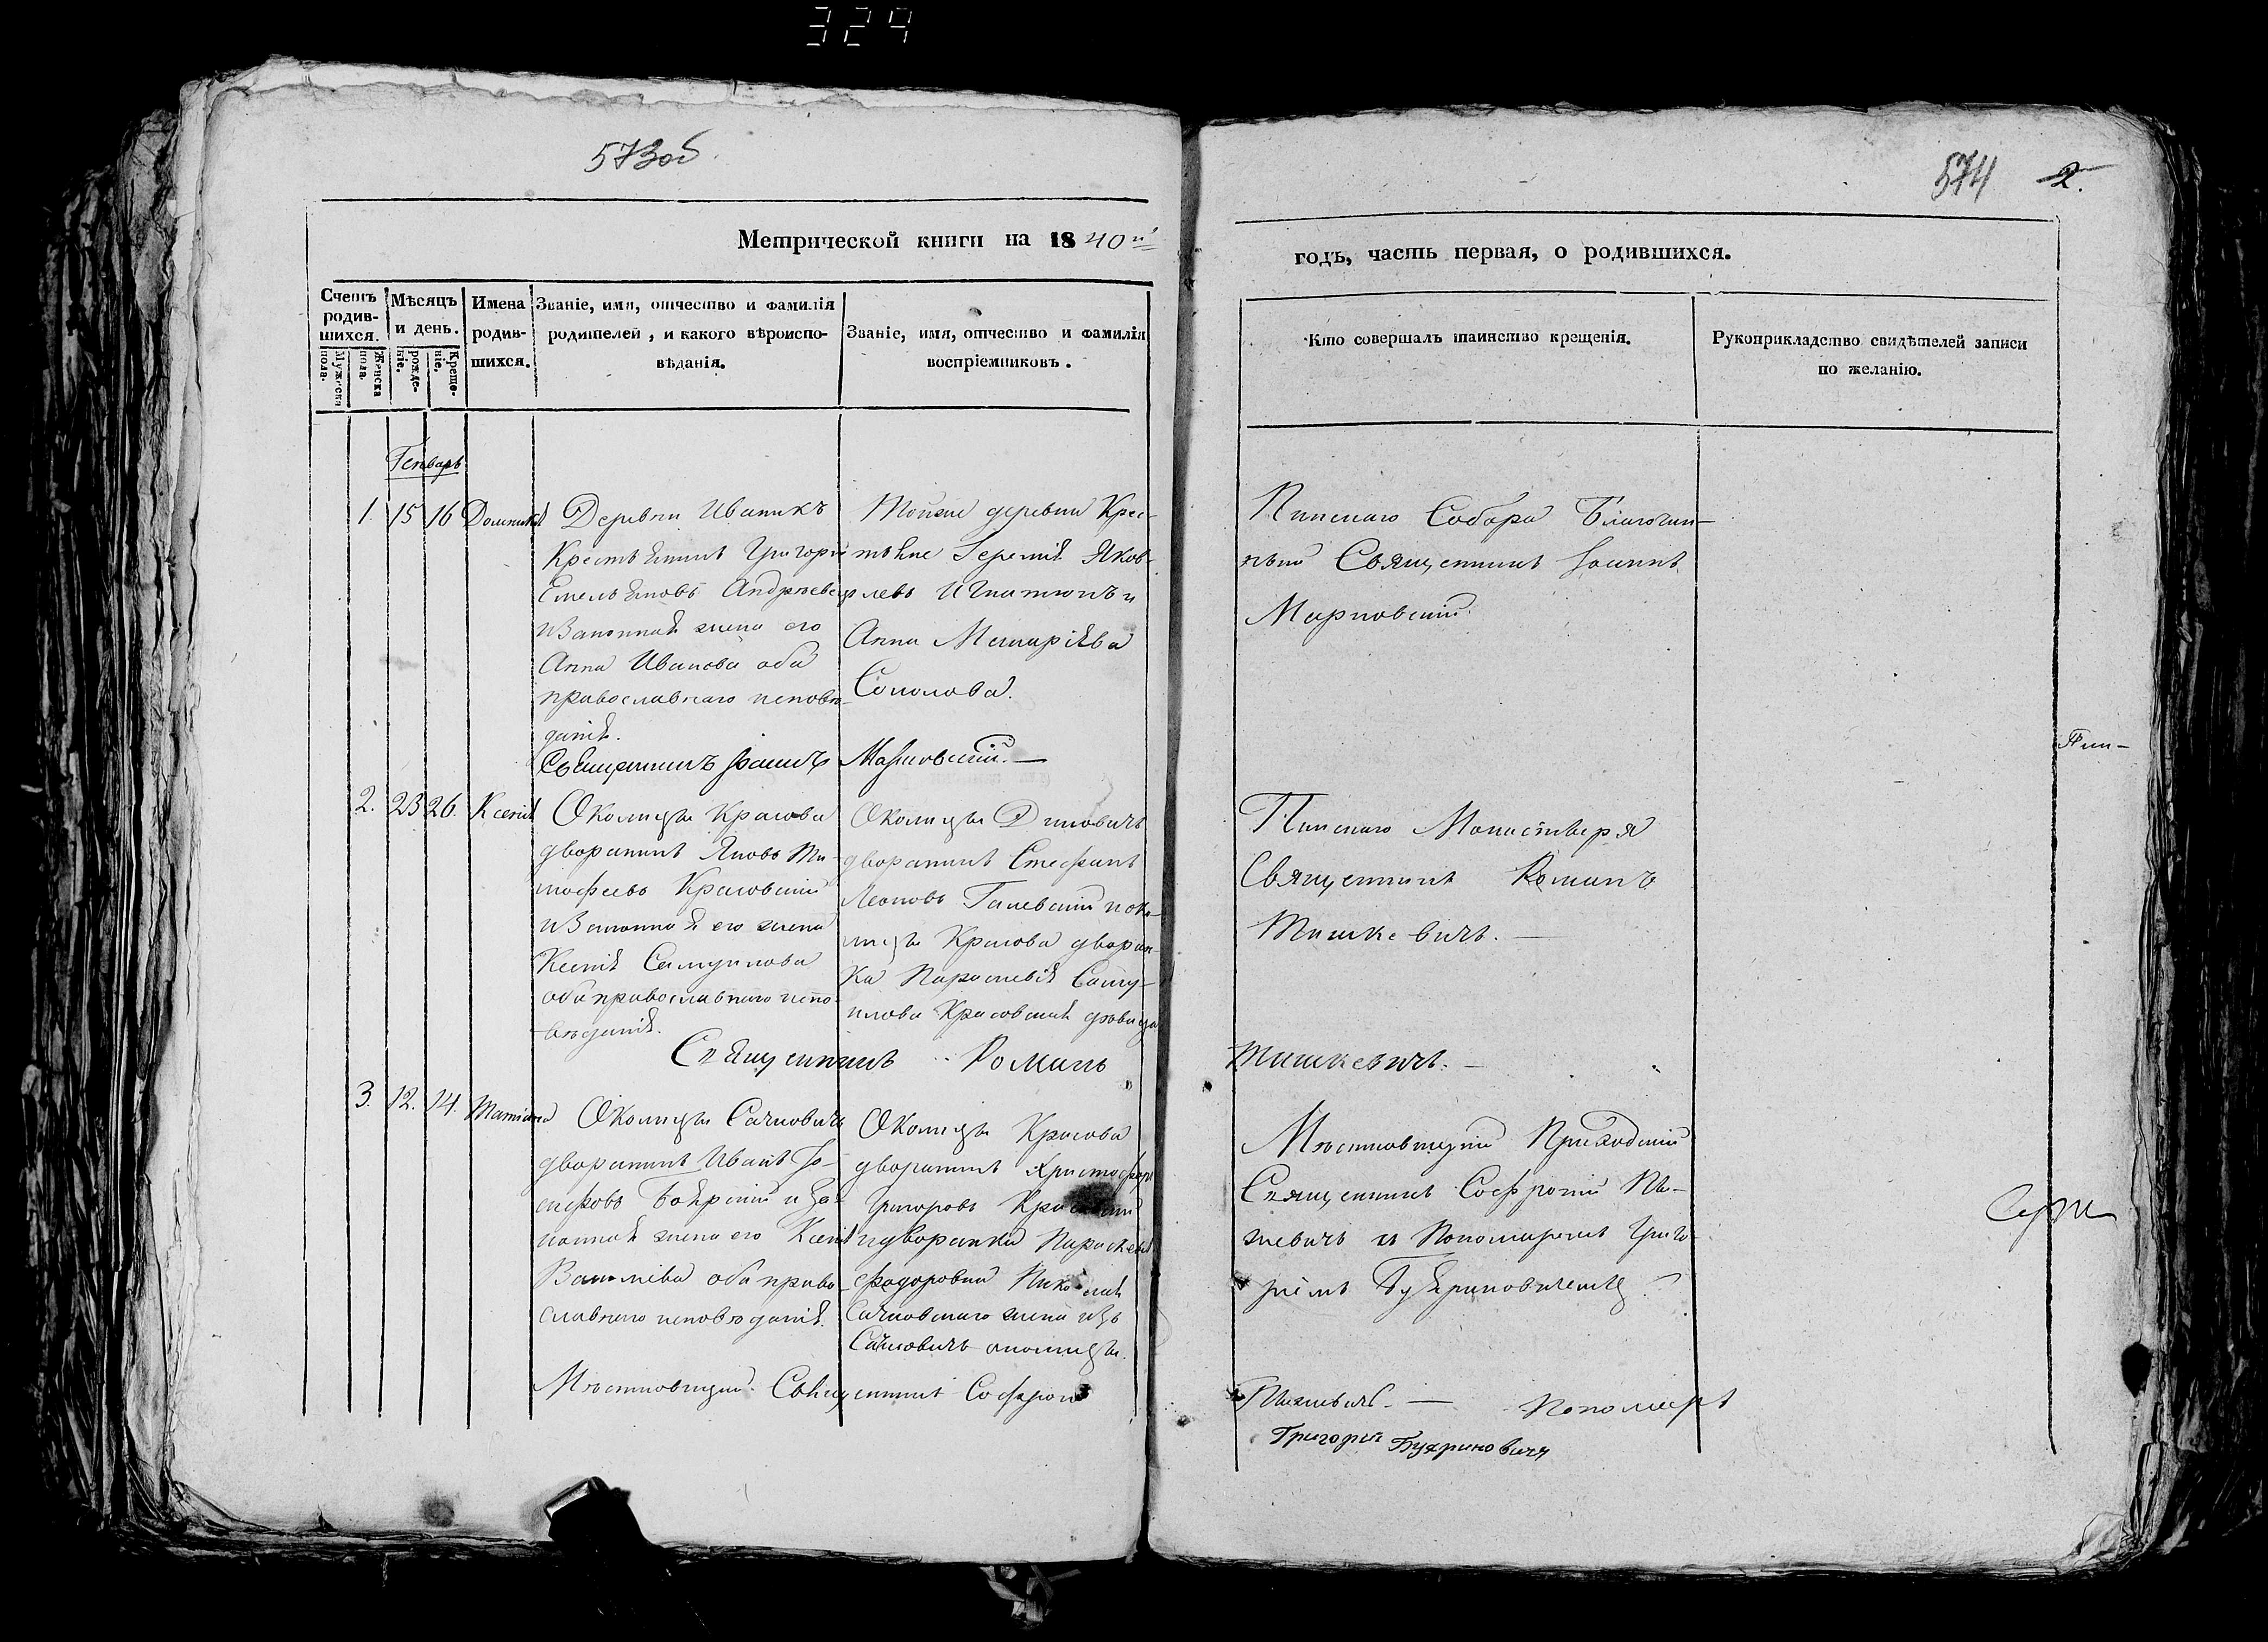 324
573об
574 2.
Метрической книги на 1840й
годъ, часть первая, о родившихся.
Счетъ родив-шихся.
Мужеска пола.
Женска пола.
Мѣсяцъ и день.
рожде-ніе.
Креще-ніе.
Имена родив-шихся.
Званіе, имя, отчество и фамилія
родителей, и какого вѣроиспо-
вѣданія.
Званіе, имя, отчество и фамилія
воспріемниковъ.
Кто совершалъ таинство крещенія.
Рукоприкладство свидѣтелей записи
по желанію.
Генварь
1. 15 16 Домникія
Деревни Иваникъ
Крестьянинъ Григорій
Емельяновъ Андреевецъ
и законная жена его
Анна Иванова оба
православнаго исповѣ-
данія.
Тойже деревни Крес-
тьяне Іеремія Яков-
левъ Игнатюкъ и
Анна Макаріева
Соколова.
Пинскаго Собора Благочин-
ный Священникъ Іоаннъ
Марновскій
Священникъ Іоаннъ Марновскій. —
2. 23 26. Ксенія
Околицы Красова
дворянинъ Яковъ Ти-
мофеевъ Красовскій
и законная его жена
Ксенія Самуилова
оба православнаго испо-
вѣданія.
Околицы
дворянинъ Стефанъ
Леоновъ и око-
лицы Красова дворян-
ка Параскевія Саму-
илова Красовская дѣвица
Пинскаго Монастыря
Священникъ Романъ
Тишкевичъ. —
Священникъ Романъ Тишкевичъ. —
3. 12. 14. Татіана
Околицы Сачковичъ
дворянинъ Иванъ Іо-
сифовъ Боярскій и за-
конная жена его Ксенія
Василіева оба право-
славнаго исповѣданія.
Околицы Красова
дворянинъ Христофоръ
Григоровъ
и дворянка Параскевія
Федоровна
Сачковскаго жена изъ
Сачковичъ околицы.
Мѣстновицкій Приходскій
Священникъ Софроній
и Пономаремъ Григо-
ріемъ Бухриновичемъ
Мѣстновицкій Священникъ Софроній
Пономарь
Григорій Бухриновичъ